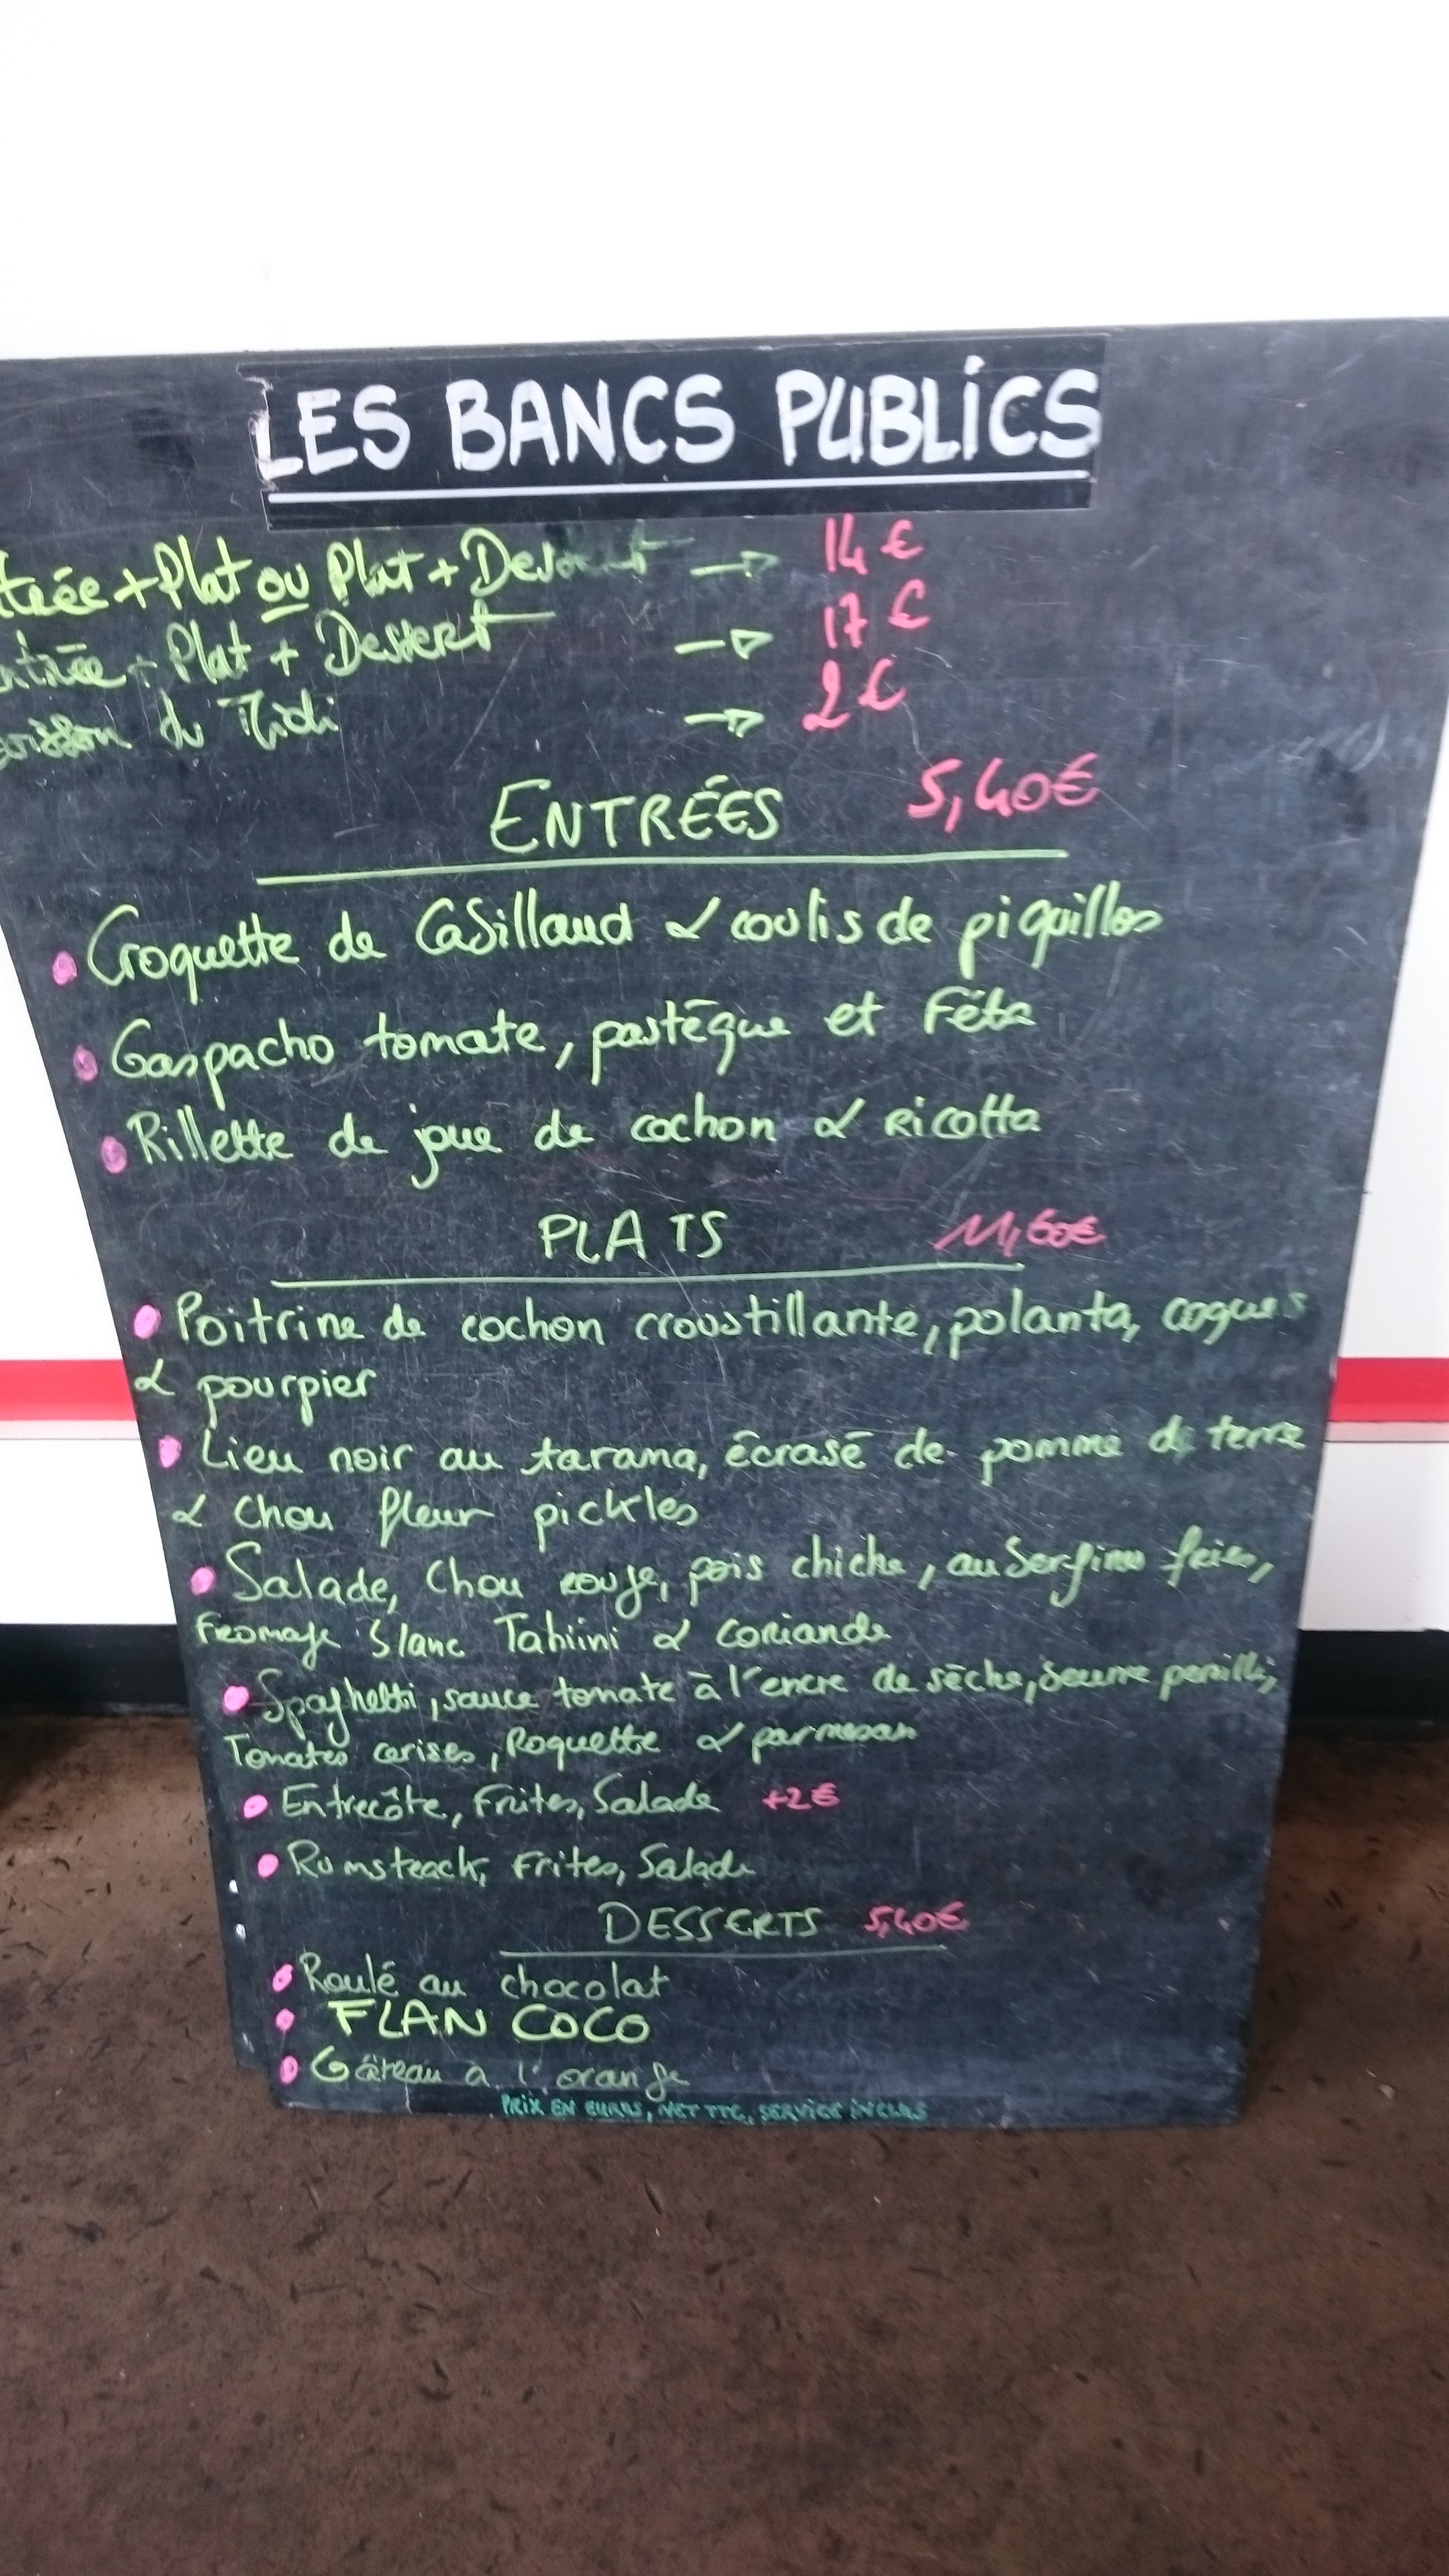 LES BANCS PUBLICS
trée + Plat ou Plat + Dessert → 14 €
ntrée + Plat + Dessert → 17 €
oisson du Midi → 2 €
ENTRÉES 5,40€
Croquette de Cabillaud & coulis de piquillos
Gaspacho tomate, pastèque et Féta
Rillette de joue de cochon & ricotta
PLATS 11,60€
Poitrine de cochon croustillante, polenta, coques
& pourpier
Lieu noir au tarama, écrasé de pomme de terre
& Chou fleur pickles
Salade, Chou rouge, pois chiche, aubergines fries,
Fromage blanc Tahiini & coriande
Spaghetti, sauce tomate à l'encre de sèche, beurre persillé,
Tomates cerises, Roquette & parmesan
Entrecôte, Frites, Salade +2€
Rumsteack, Frites, Salade
DESSERTS 5,40€
Roulé au chocolat
FLAN COCO
Gâteau à l'orange
PRIX EN EUROS, NET TTC, SERVICE INCLUS